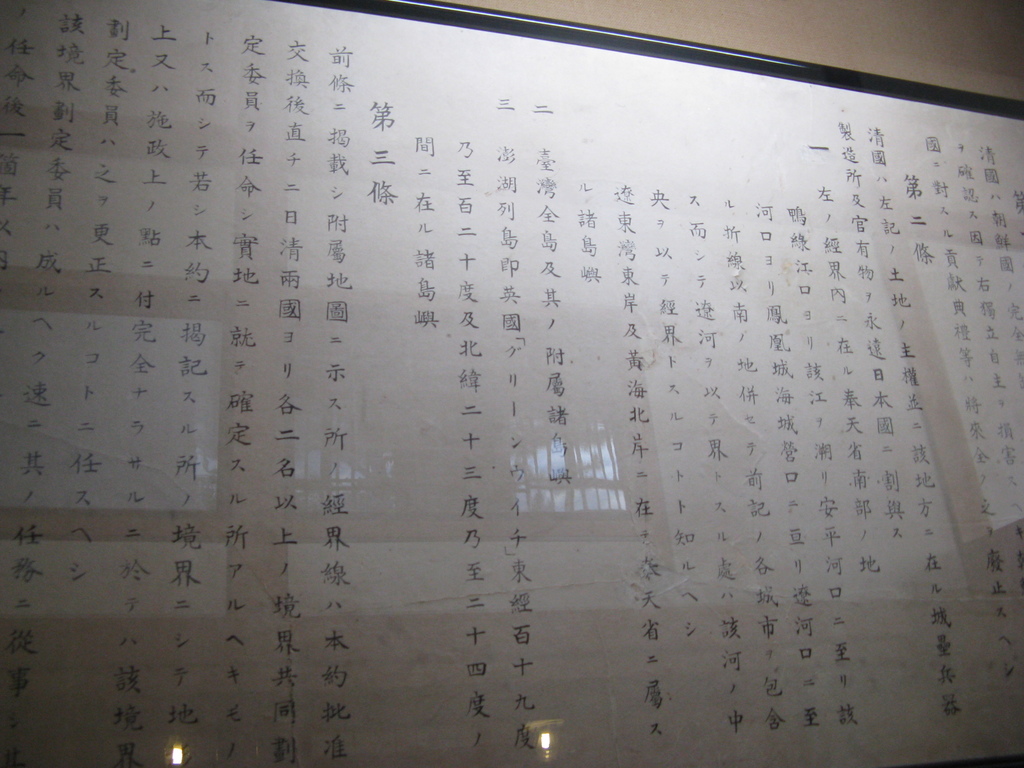 第
清國ハ朝鮮國ノ完全無
ヲ確認ス因テ右獨立自主ヲ損害スヘキ朝鮮
國ニ對スル貢獻典禮等ハ將來全ク之ヲ廢止スヘシ
第二條
清國ハ左記ノ土地ノ主權並ニ該地方ニ在ル城壘兵器
製造所及官有物ヲ永遠日本國ニ割與ス
一 左ノ經界內ニ在ル奉天省南部ノ地
鴨綠江口ヨリ該江ヲ溯リ安平河口ニ至リ該
河口ヨリ鳳凰城海城營口ニ亘リ遼河口ニ至
ル折線以南ノ地併セテ前記ノ各城市ヲ包含
ス而シテ遼河ヲ以テ界トスル處ハ該河ノ中
央ヲ以テ經界トスルコトト知ルヘシ
遼東灣東岸及黃海北岸ニ在テ奉天省ニ屬ス
ル諸島嶼
二 臺灣全島及其ノ附屬諸島嶼
三 澎湖列島卽英國「グリーンウイチ」東經百十九度
乃至百二十度及北緯二十三度乃至二十四度ノ
間ニ在ル諸島嶼
第三條
前條ニ揭載シ附屬地圖ニ示ス所ノ經界線ハ本約批准
交換後直チニ日清兩國ヨリ各二名以上ノ境界共同劃
定委員ヲ任命シ實地ニ就テ確定スル所アルヘキモノ
トス而シテ若シ本約ニ揭記スル所ノ境界ニシテ地形
上又ハ施政上ノ點ニ付完全ナラサルニ於テハ該境界
劃定委員ハ之ヲ更正スルコトニ任スヘシ
該境界劃定委員ハ成ルヘク速ニ其ノ任務ニ從事シ其
ノ任命後一箇年以內